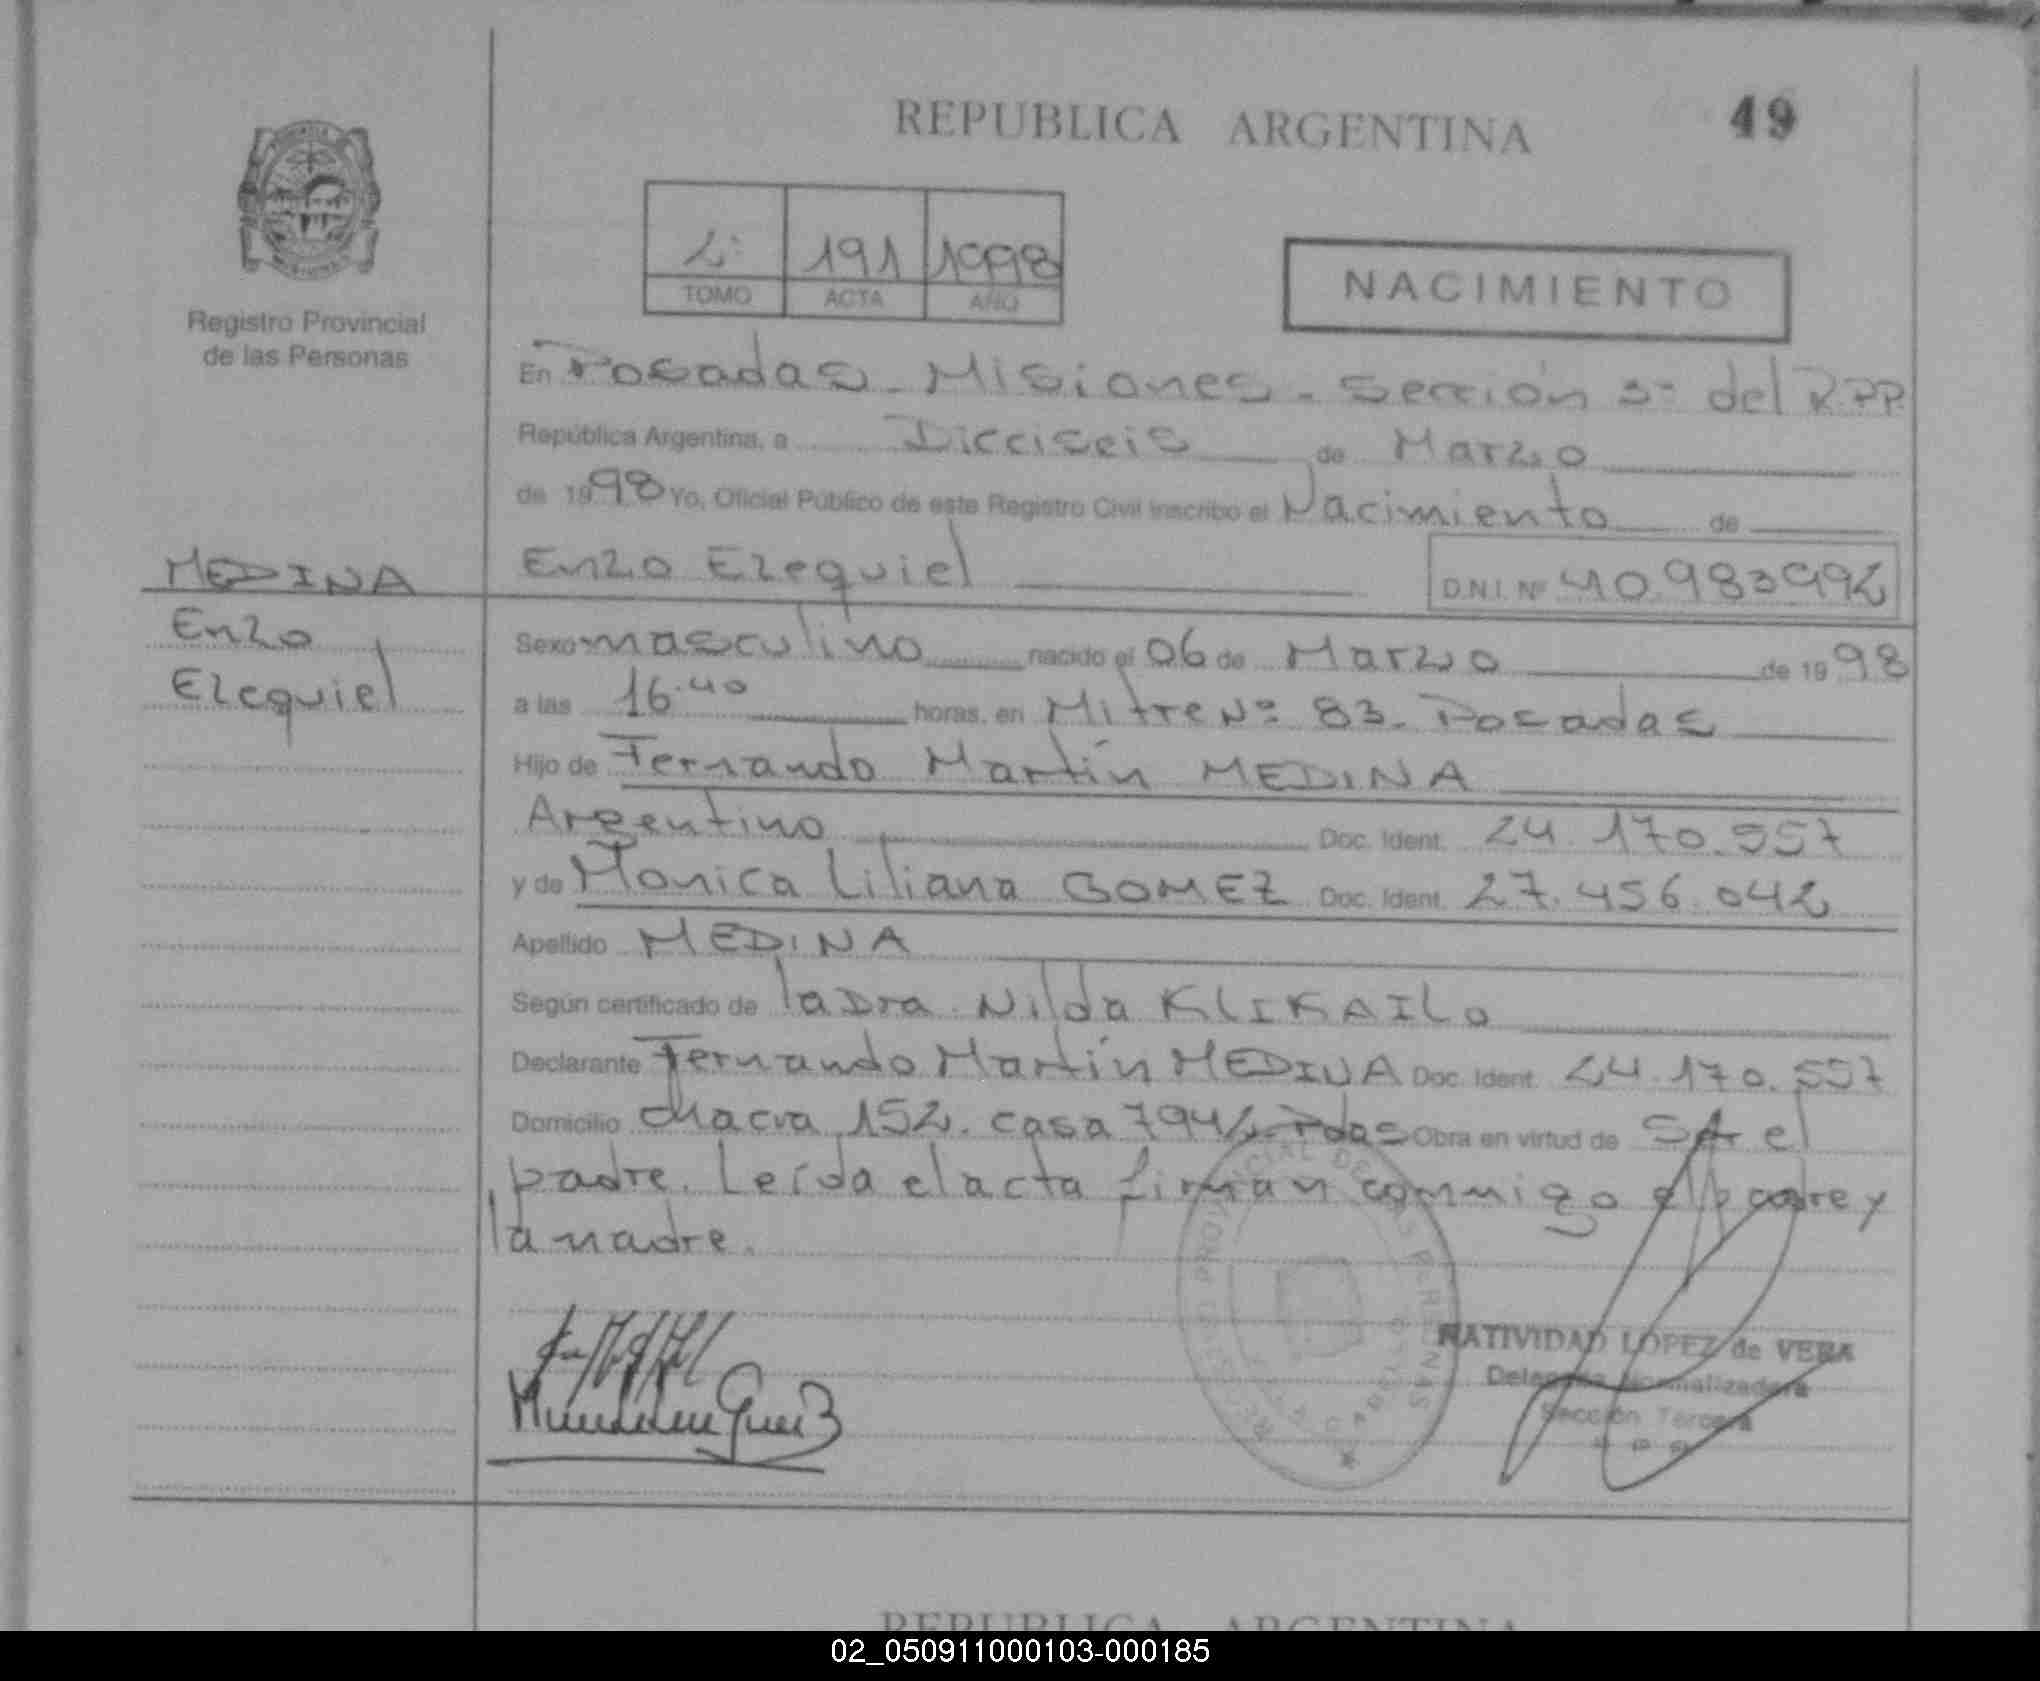 REPUBLICA ARGENTINA
49
2: 191 1998
TOMO ACTA AÑO
NACIMIENTO
Registro Provincial
de las Personas
En Posadas - Misiones - Sección 3ª del R.P.P.
República Argentina, a Dieciseis de Marzo
de 1998 Yo, Oficial Público de este Registro Civil inscribo el Nacimiento de
Enzo Ezequiel D.N.I. Nº 40.983.992
MEDINA
Enzo
Ezequiel
Sexo masculino nacido el 06 de Marzo de 1998
a las 16.40 horas, en Mitre Nº 83. Posadas
Hijo de Fernando Martín MEDINA
Argentino Doc. Ident. 24.170.557
y de Monica Liliana GOMEZ Doc. Ident. 27.456.042
Apellido MEDINA
Según certificado de la Dra. Nilda KLIKAILO
Declarante Fernando Martín MEDINA Doc. Ident. 24.170.557
Domicilio chacra 152. casa 794 Pdas Obra en virtud de ser el
padre. Leída el acta firman conmigo el padre y
la madre.
REGISTRO PROVINCIAL DE LAS PERSONAS
NATIVIDAD LOPEZ de VERA
Delegada Normalizadora
Sección Tercera
REPUBLICA ARGENTINA
02_050911000103-000185